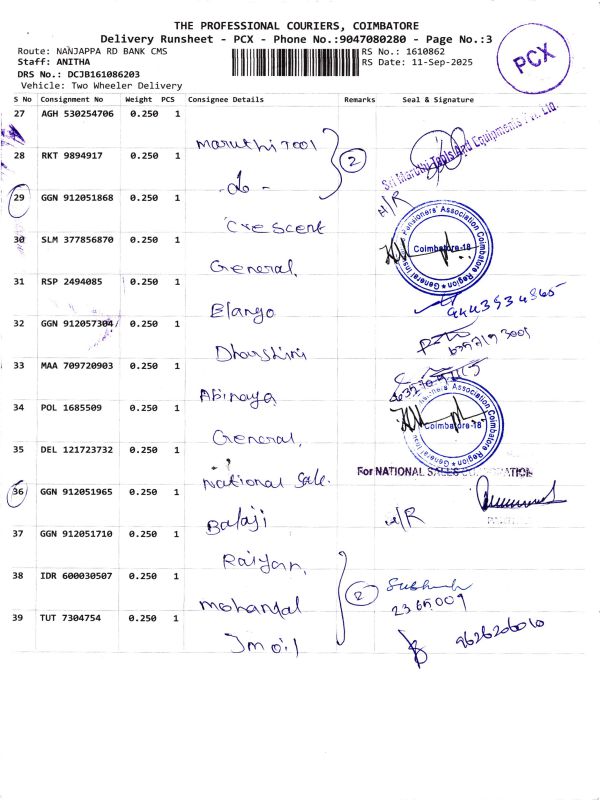 THE PROFESSIONAL COURIERS, COIMBATORE
Delivery Runsheet - PCX - Phone No.:9047080280 - Page No.:3
Route: NANJAPPA RD BANK CMS
RS No.: 1610862
Staff: ANITHA
RS Date: 11-Sep-2025
DRS No.: DCJB161086203
Vehicle: Two Wheeler Delivery
PCX
S No Consignment No Weight PCS Consignee Details Remarks Seal & Signature
27 AGH 530254706 0.250 1 Maruthi Tool
2
Sri Maruthi Tools And Equipments Pvt. Ltd.
28 RKT 9894917 0.250 1 -do-
29 GGN 912051868 0.250 1 Crescent N/R
30 SLM 377856870 0.250 1 General
General Insurance Pensioners' Association Coimbatore Region
Coimbatore-18
31 RSP 2494085 0.250 1 Elango
32 GGN 912057304 0.250 1 Dharshini
33 MAA 709720903 0.250 1 Abinaya
34 POL 1685509 0.250 1 General
Pensioners' Association Coimbatore Region
Coimbatore-18
35 DEL 121723732 0.250 1 National Sale.
For NATIONAL SALES CORPORATION
36 GGN 912051965 0.250 1 Balaji N/R
37 GGN 912051710 0.250 1 Raiyan
38 IDR 600030507 0.250 1 Mohanlal
2
39 TUT 7304754 0.250 1 Imoil
9626206010